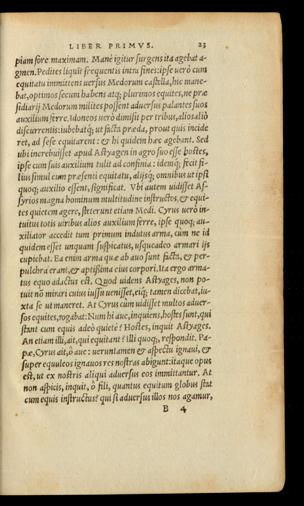 LIBER PRIMVS. 23
piam fore maximam. Mane igitur surgens ita agebat a-
gmen. Pedites liquit frequentis intra fines: ipse uerò cum
equitatu immittens uersus Medorum castella, hic mane-
bat, optimos secum habens atq; plurimos equites, ne præ
sidiarij Medorum milites possent aduersus palantes suos
auxilium ferre. Idoneos uerò dimisit per tribus, alios aliò
discurrentis: iubebatq; ut facta præda, prout quis incide
ret, ad sese equitarent: & hi quidem hæc agebant. Sed
ubi increbuisset apud Astyagen in agro suo esse hostes,
ipse cum suis auxilium tulit ad confinia: idemq; fecit fi-
lius simul cum præsenti equitatu, alijsq; omnibus ut ipsi
quoq; auxilio essent, significat. Vbi autem uidisset As-
syrios magna hominum multitudine instructos, & equi-
tes quietem agere, steterunt etiam Medi. Cyrus uerò in-
tuitus totis uiribus alios auxilium ferre, ipse quoq; au-
xiliator accedit tum primum indutus arma, cum ne id
quidem esset unquam suspicatus, usqueadeo armari ijs
cupiebat. Ea enim arma quæ ab auo sunt facta, & per-
pulchra erant, & aptissima eius corpori. Ita ergo arma-
tus equo aduectus est. Quod uidens Astyages, non po-
tuit nō mirari cuius iussu uenisset, eiq; tamen dicebat, iu-
xta se ut maneret. At Cyrus cum uidisset multos aduer-
sos equites, rogabat: Num hi aue, inquiens, hostes sunt, qui
stant cum equis adeò quietè? Hostes, inquit Astyages.
An etiam illi, ait, qui equitant? Illi quoq;, respondit. Pa-
pæ, Cyrus ait, ô aue: ueruntamen & aspectu ignaui, &
super equuleos ignauos res nostras abigunt: itaque opus
est, ut ex nostris aliqui aduersus eos immittantur. At
non aspicis, inquit, ô fili, quantus equitum globus stat
cum equis instructus? qui si aduersus illos nos agamur,
B 4